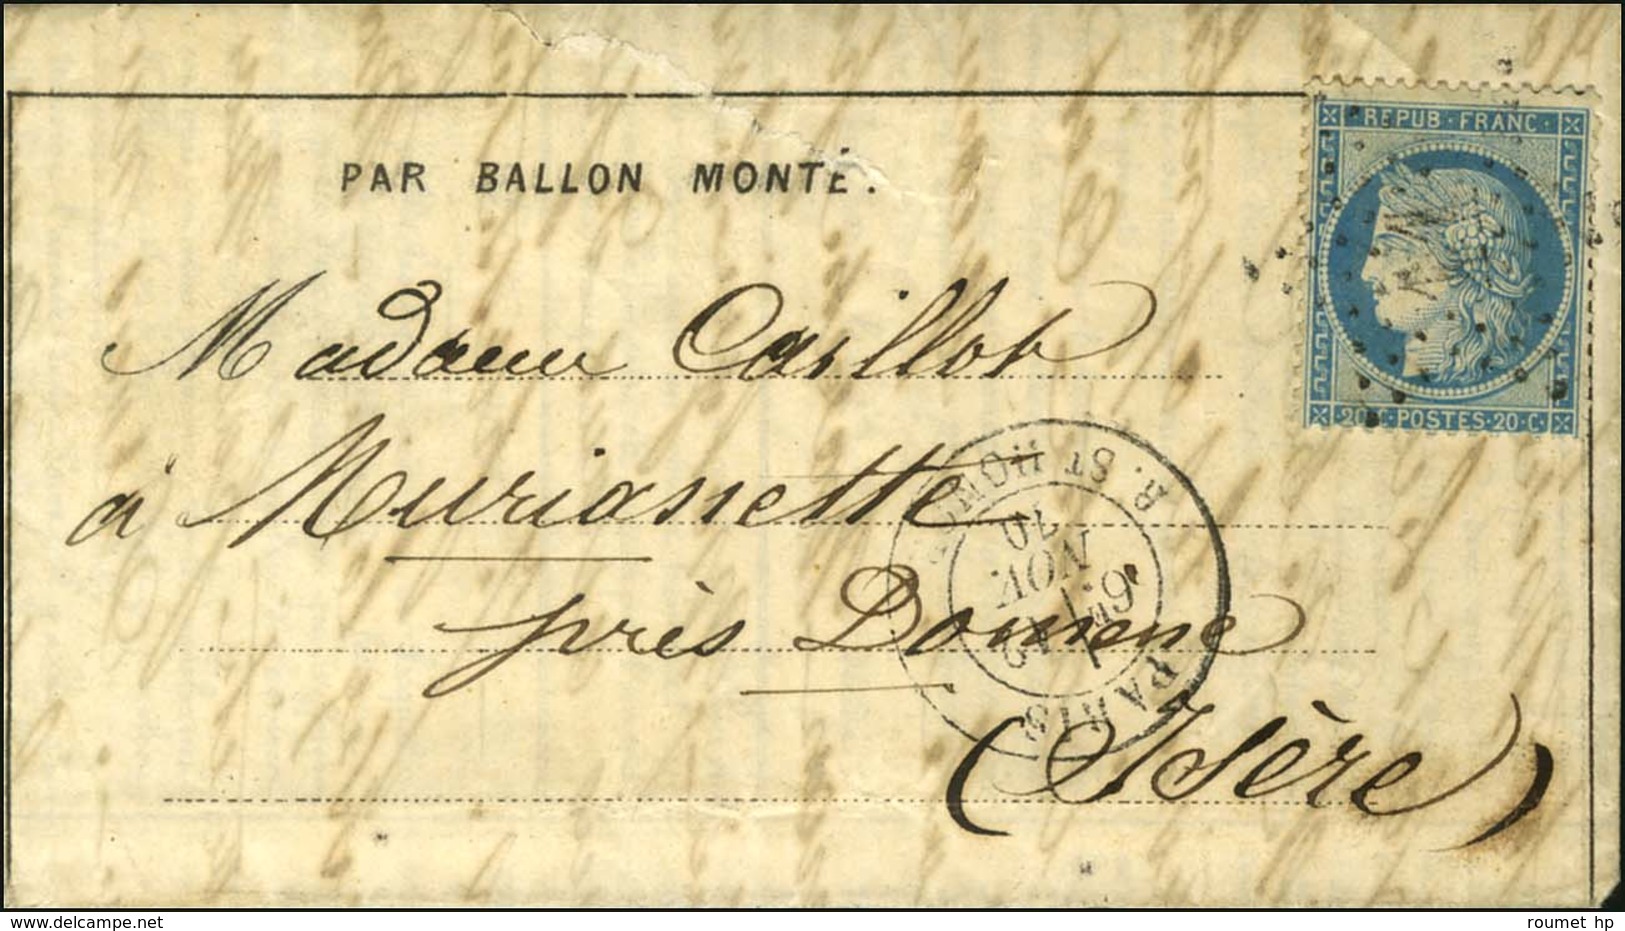 REPUB·FRANC·
PAR BALLON MONTÉ.
Madame Caillot
20·C·POSTES·20·C·
à Murianette
R. ST HONORÉ
PARIS
6E
NOV.
70
près Domène
(Isère)
www.delcampe.net
roumet hp